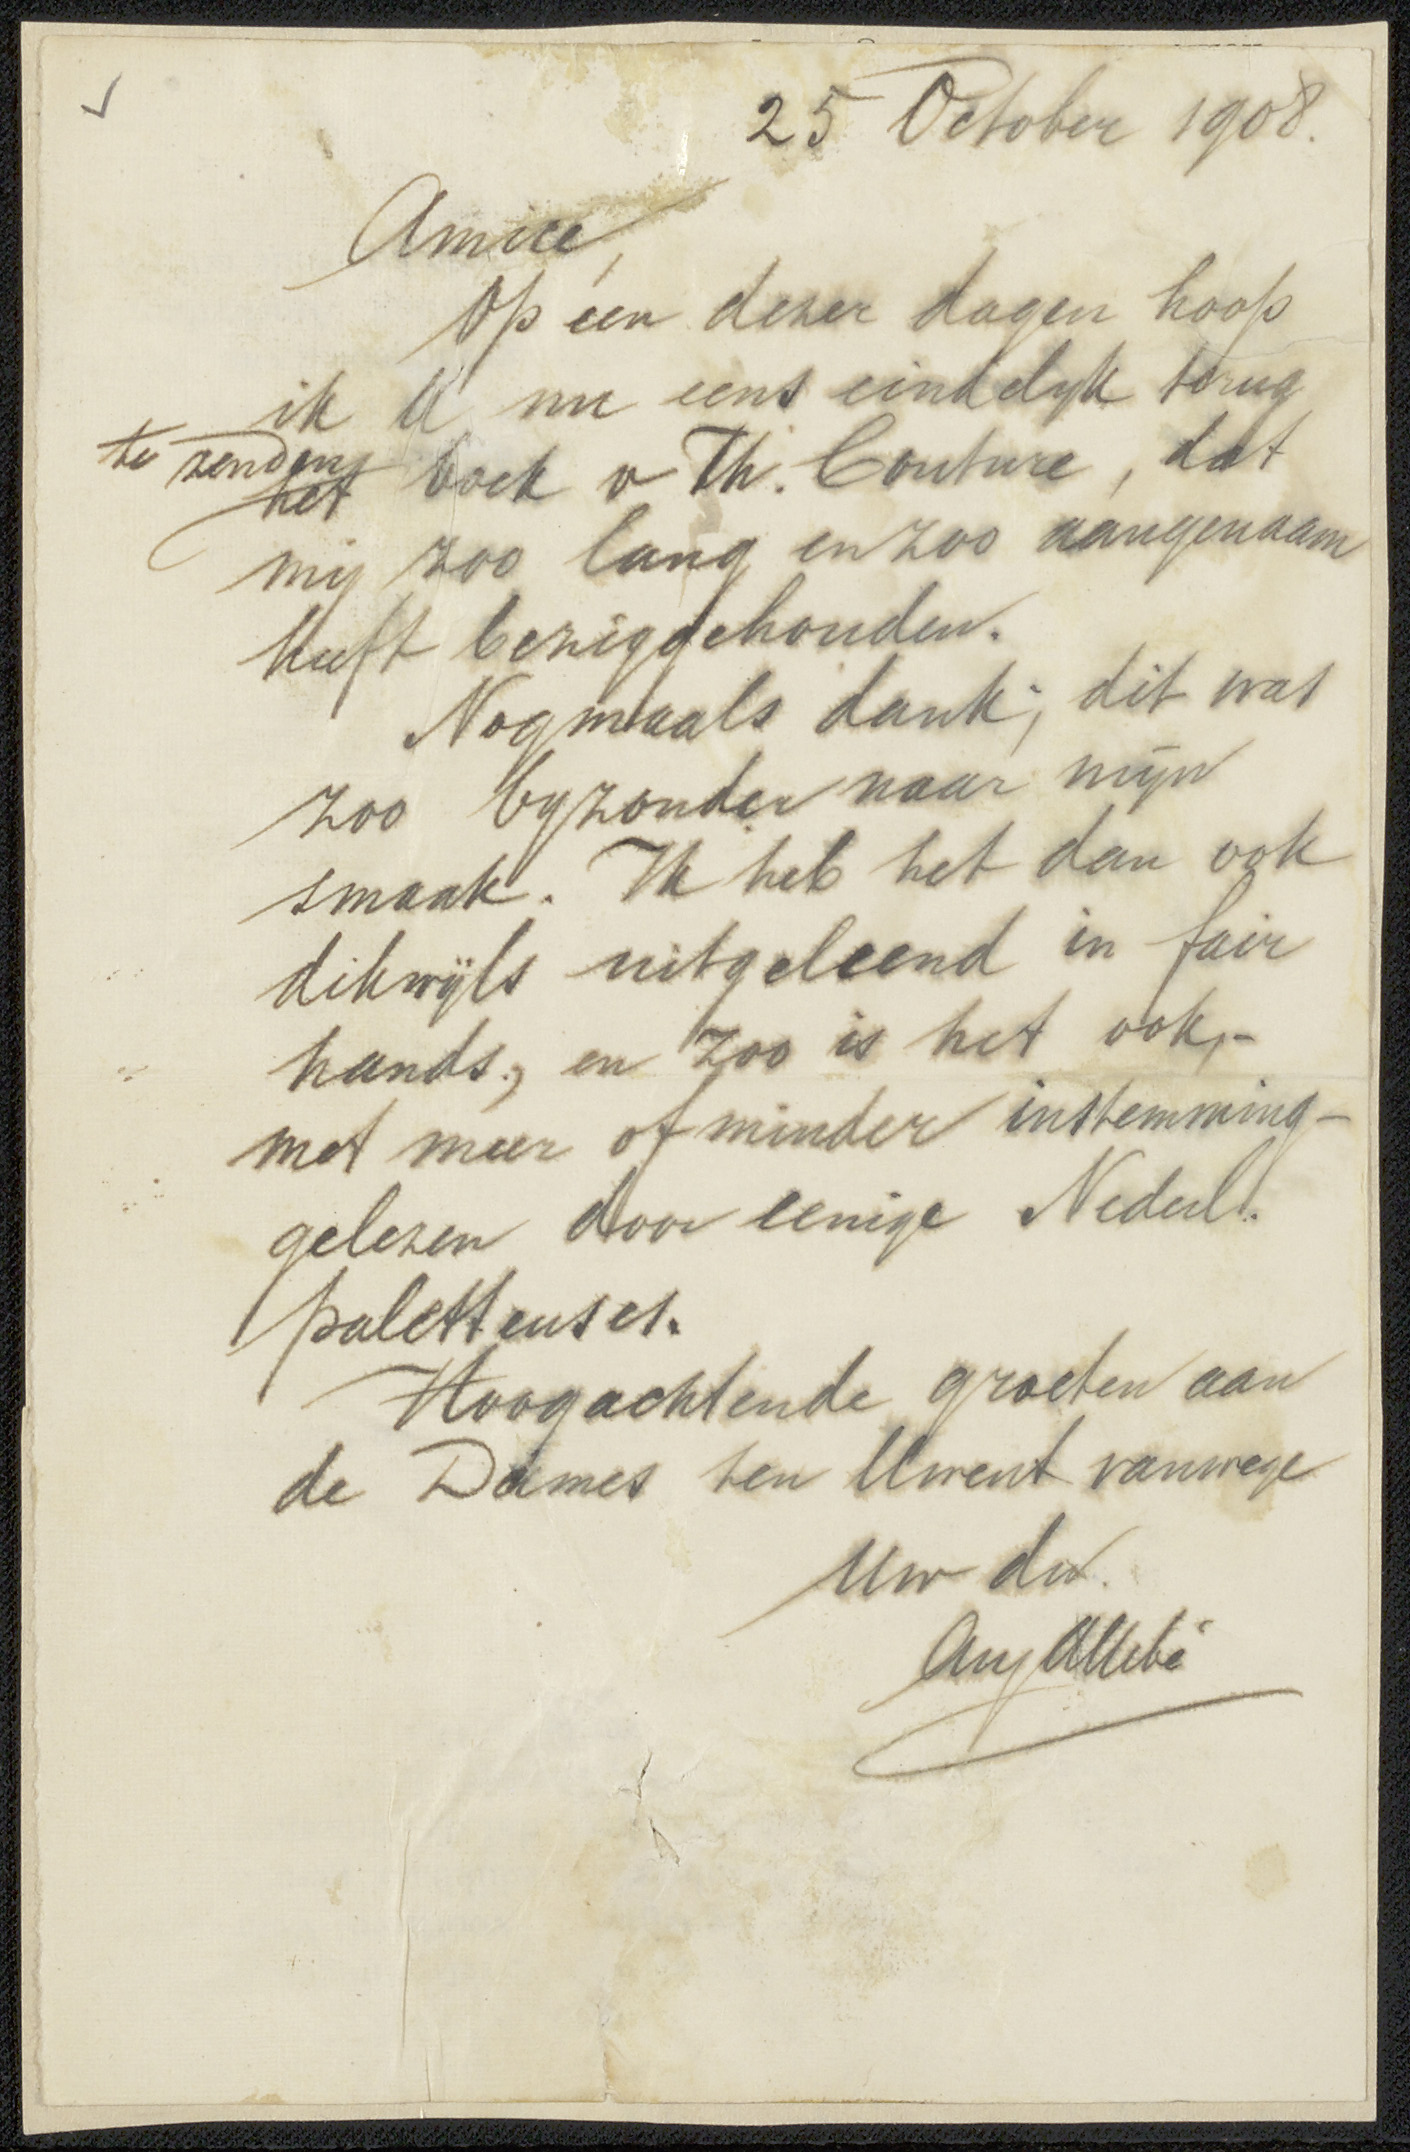 25 October 1908.
Amice,
Op één dezer dagen hoop
ik U nu eens eindelyk terug
te zenden
het boek v Th. Couture, dat
mij zoo lang en zoo aangenaam
heeft beziggehouden.
Nogmaals dank; dit was
zoo byzonder naar mijn
smaak. Ik heb het dan ook
dikwijls uitgeleend in fair
hands, en zoo is het ook, -
met meer of minder instemming -
gelezen door eenige Nederl.
paletteuses.
Hoogachtende groeten aan
de Dames ten Uwent vanwege
Uw dw.
Aug Allebé